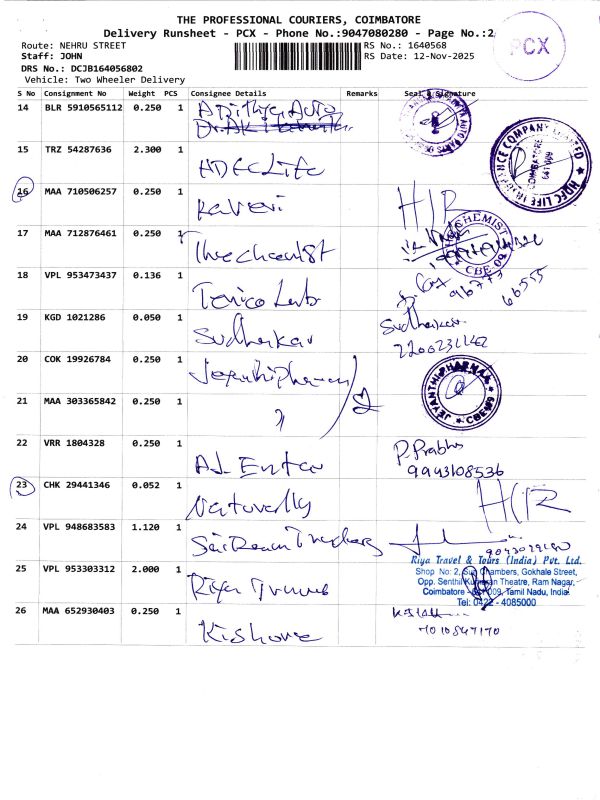 THE PROFESSIONAL COURIERS, COIMBATORE
Delivery Runsheet - PCX - Phone No.:9047080280 - Page No.:2
PCX
Route: NEHRU STREET
RS No.: 1640568
Staff: JOHN
RS Date: 12-Nov-2025
DRS No.: DCJB164056802
Vehicle: Two Wheeler Delivery
S No Consignment No Weight PCS Consignee Details Remarks Seal & Signature
14 BLR 5910565112 0.250 1 Adithya Auto
15 TRZ 54287636 2.300 1 HDFC Life
HDFC LIFE INSURANCE COMPANY LIMITED
COIMBATORE
641 009
16 MAA 710506257 0.250 1 Kaveri
17 MAA 712876461 0.250 1
CHEMIST
CBE 09
18 VPL 953473437 0.136 1
19 KGD 1021286 0.050 1 Sudhakar Sudhakar
20 COK 19926784 0.250 1
JEYANTHI PHARMA
CBE-9
21 MAA 303365842 0.250 1 "
22 VRR 1804328 0.250 1 P. Prabhu
9943108536
23 CHK 29441346 0.052 1 Naturally
24 VPL 948683583 1.120 1
25 VPL 953303312 2.000 1 Riya Travels
Riya Travel & Tours (India) Pvt. Ltd.
Shop No: 2, Chambers, Gokhale Street,
Opp. Senthil Theatre, Ram Nagar,
Coimbatore - 641 009, Tamil Nadu, India.
Tel: 0422 - 4085000
26 MAA 652930403 0.250 1 Kishore
7010847170